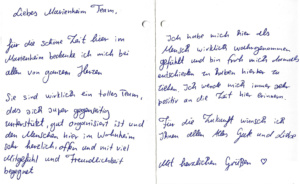 Liebes Marienheim Team,
für die schöne Zeit hier im
Marienheim bedanke ich mich bei
allen von ganzem Herzen
Sie sind wirklich ein tolles Team,
das sich super gegenseitig
unterstützt, gut organisiert ist und
den Menschen hier im Wohnheim
sehr herzlich, offen und mit viel
Mitgefühl und Freundlichkeit
begegnet
Ich habe mich hier als
Mensch wirklich wahrgenommen
gefühlt und bin froh mich damals
entschieden zu haben hierher zu
ziehen. Ich werde mich immer sehr
positiv an die Zeit hier erinnern.
Für die Zukunft wünsch ich
Ihnen allen Alles Gute und Liebe
Mit herzlichen Grüßen ♡